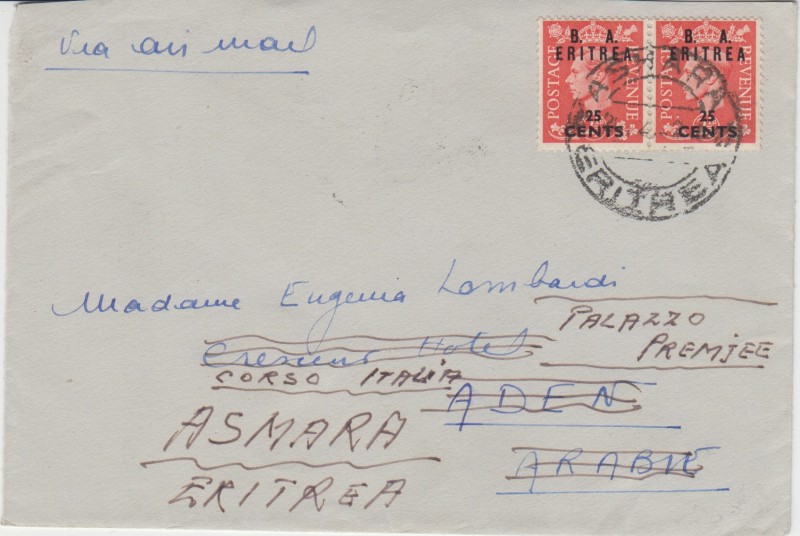 Via air mail
B. A. ERITREA
POSTAGE REVENUE
25 CENTS
B. A. ERITREA
POSTAGE REVENUE
25 CENTS
ASMARA
ERITREA
Madame Eugenia Lombardi
PALAZZO
PREMJEE
Crescent Hotel
CORSO ITALIA
ADEN
ASMARA
ARABIE
ERITREA